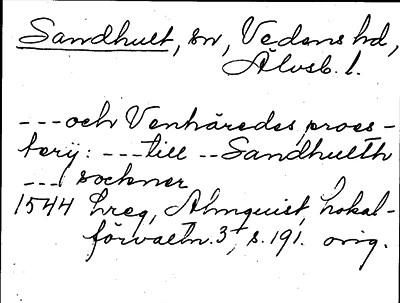 Sandhult, sn, Vedens hd,
Älvsb. l.
---och Venhäredes proes-
terij: ---till --Sandhullth
--- sockner
1544 Lreg, Almquist, Lokal-
förvaltn. 3, s. 191. orig.